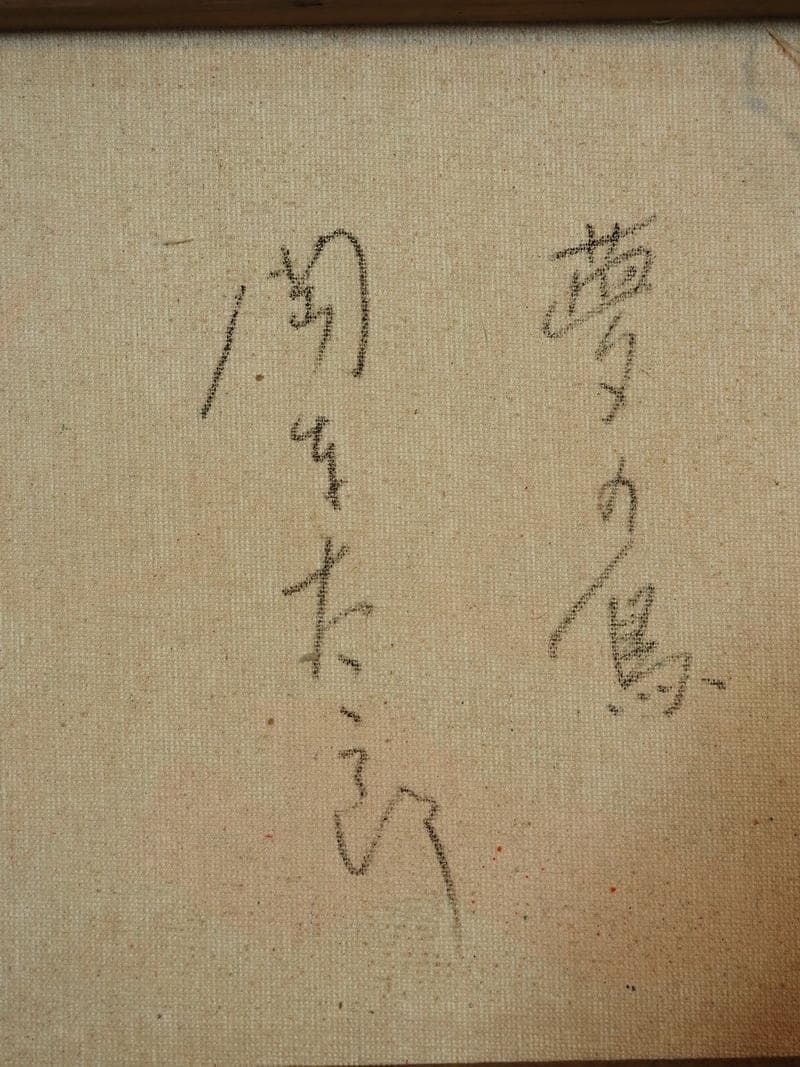 夢の鳥
岡本太郎